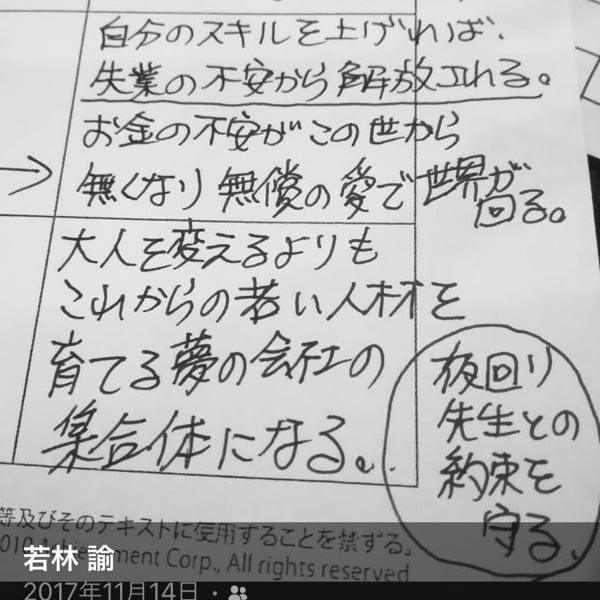 自分のスキルを上げれば、
失業の不安から解放される。
お金の不安がこの世から
無くなり無償の愛で世界が
回る。
大人を変えるよりも
これからの若い人材を
育てる夢の会社の
集合体になる。
夜回り
先生との
約束を
守る。
等及びそのテキストに使用することを禁ずる。
010 Achievement Corp., All rights reserved
若林 諭
2017年11月14日